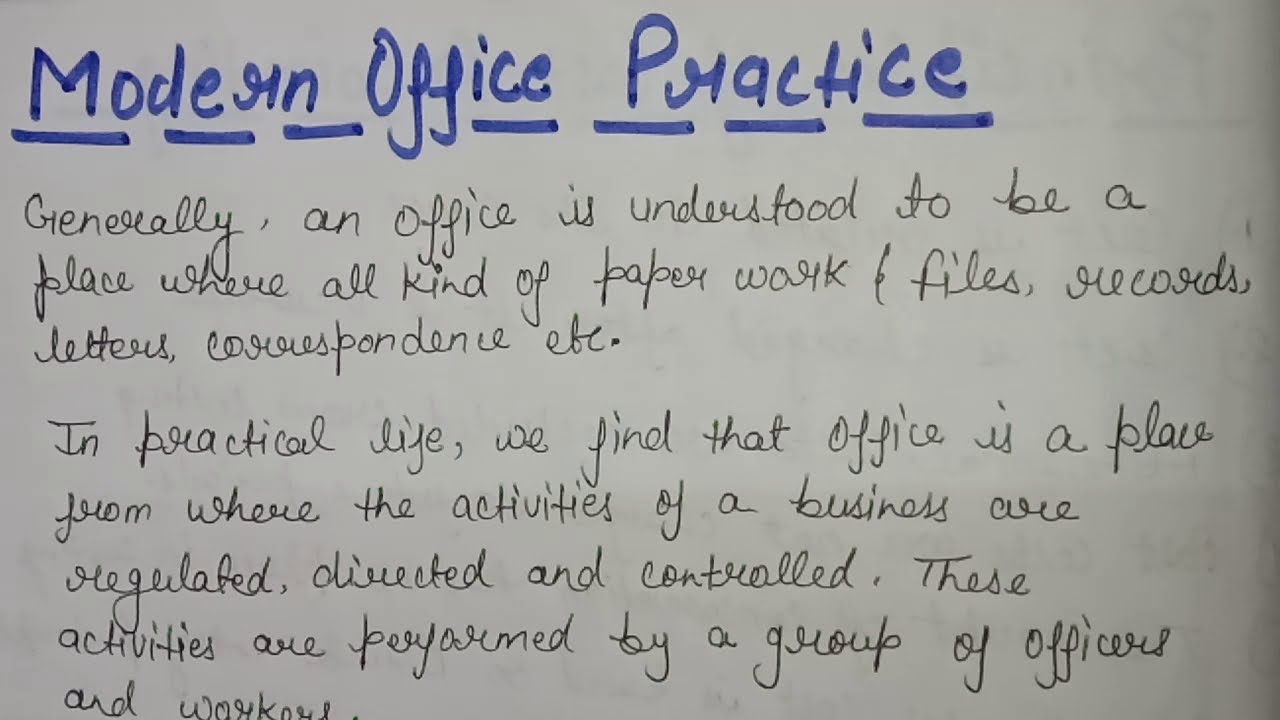 Modern Office Practice
Generally, an office is understood to be a
place where all kind of paper work ( files, records,
letters, correspondence etc.
In practical life, we find that office is a place
from where the activities of a business are
regulated, directed and controlled. These
activities are performed by a group of officers
and workers.